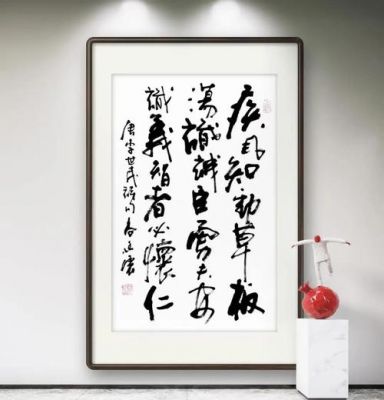 疾风知勁草板
蕩識誠臣勇夫安
識義智者必懷仁
唐李世民詩句